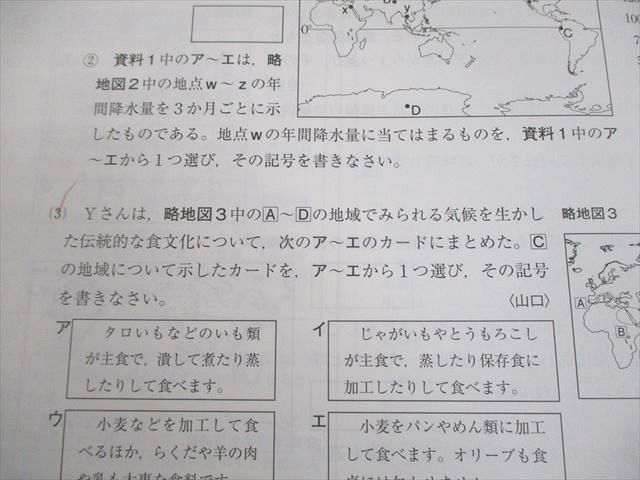 ② 資料1中のア～エは，略
地図2中の地点w～zの年
間降水量を3か月ごとに示
したものである。地点wの年間降水量に当てはまるものを，資料1中のア
～エから1つ選び，その記号を書きなさい。
x
y
0°
C
D
(3) Yさんは，略地図3中のA～Dの地域でみられる気候を生かし
た伝統的な食文化について，次のア～エのカードにまとめた。C
の地域について示したカードを，ア～エから1つ選び，その記号
を書きなさい。
〈山口〉
略地図3
A
B
ア
タロいもなどのいも類
が主食で，潰して煮たり蒸
したりして食べます。
イ
じゃがいもやとうもろこし
が主食で，蒸したり保存食に
加工したりして食べます。
ウ
小麦などを加工して食
べるほか，らくだや羊の肉
エ
小麦をパンやめん類に加工
して食べます。オリーブも食